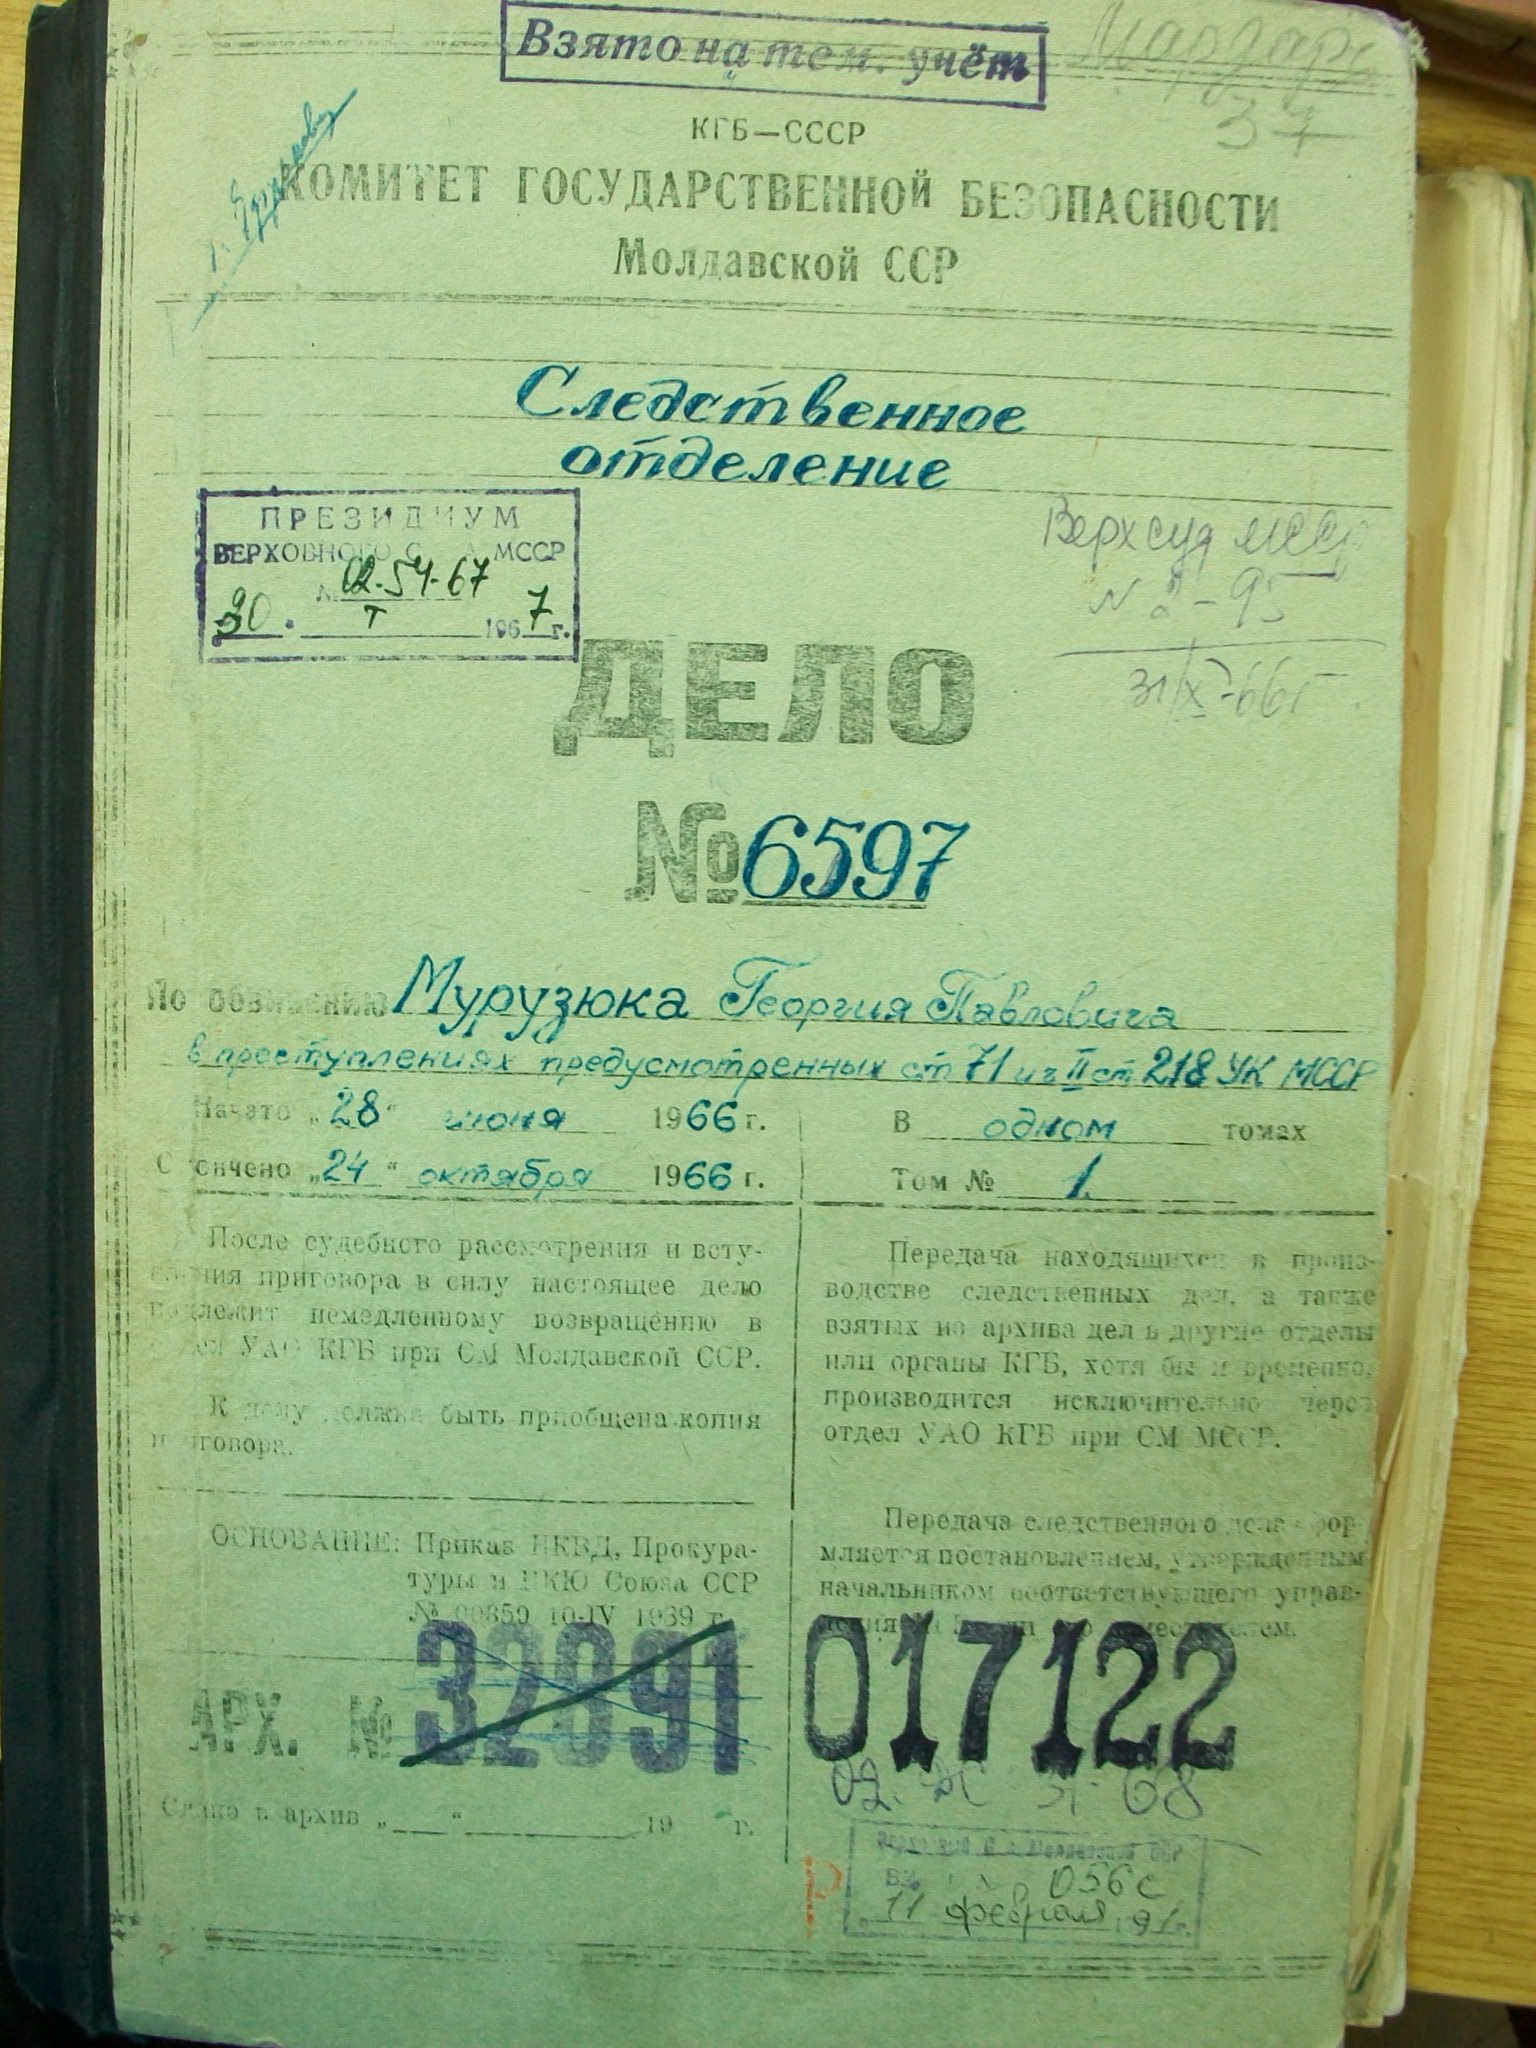 Взято на тем. учёт
37
КГБ—СССР
КОМИТЕТ ГОСУДАРСТВЕННОЙ БЕЗОПАСНОСТИ
Молдавской ССР
Следственное
отделение
ПРЕЗИДИУМ
ВЕРХОВНОГО С А МССР
№ 02-54-67
30. 1967 г.
Верхсуд МССР
ДЕЛО
№ 6597
По обвинению Мурузюка Георгия Павловича
в преступлениях предусмотренных ст 71 и ч II ст 218 УК МССР
Начато „28“ июня 1966 г.
Окончено „24“ октября 1966 г.
В одном томах
Том № 1
После судебного рассмотрения и всту-
пления приговора в силу настоящее дело
подлежит немедленному возвращению в
УАО КГБ при СМ Молдавской ССР.
К делу должна быть приобщена копия
приговора.
ОСНОВАНИЕ: Приказ НКВД, Прокура-
туры и НКЮ Союза ССР
№ 00359 10-IV 1939 г.
Передача находящихся в произ-
водстве следственных дел, а также
взятых из архива дел в другие отделы
или органы КГБ, хотя бы и временно,
производится исключительно через
отдел УАО КГБ при СМ МССР.
Передача следственного дела офор-
мляется постановлением, утвержденным
начальником соответствующего управ-
ления
АРХ. № 32891
017122
Сдано в архив „ “ 19 г.
056с
„11 февраля 91 г.